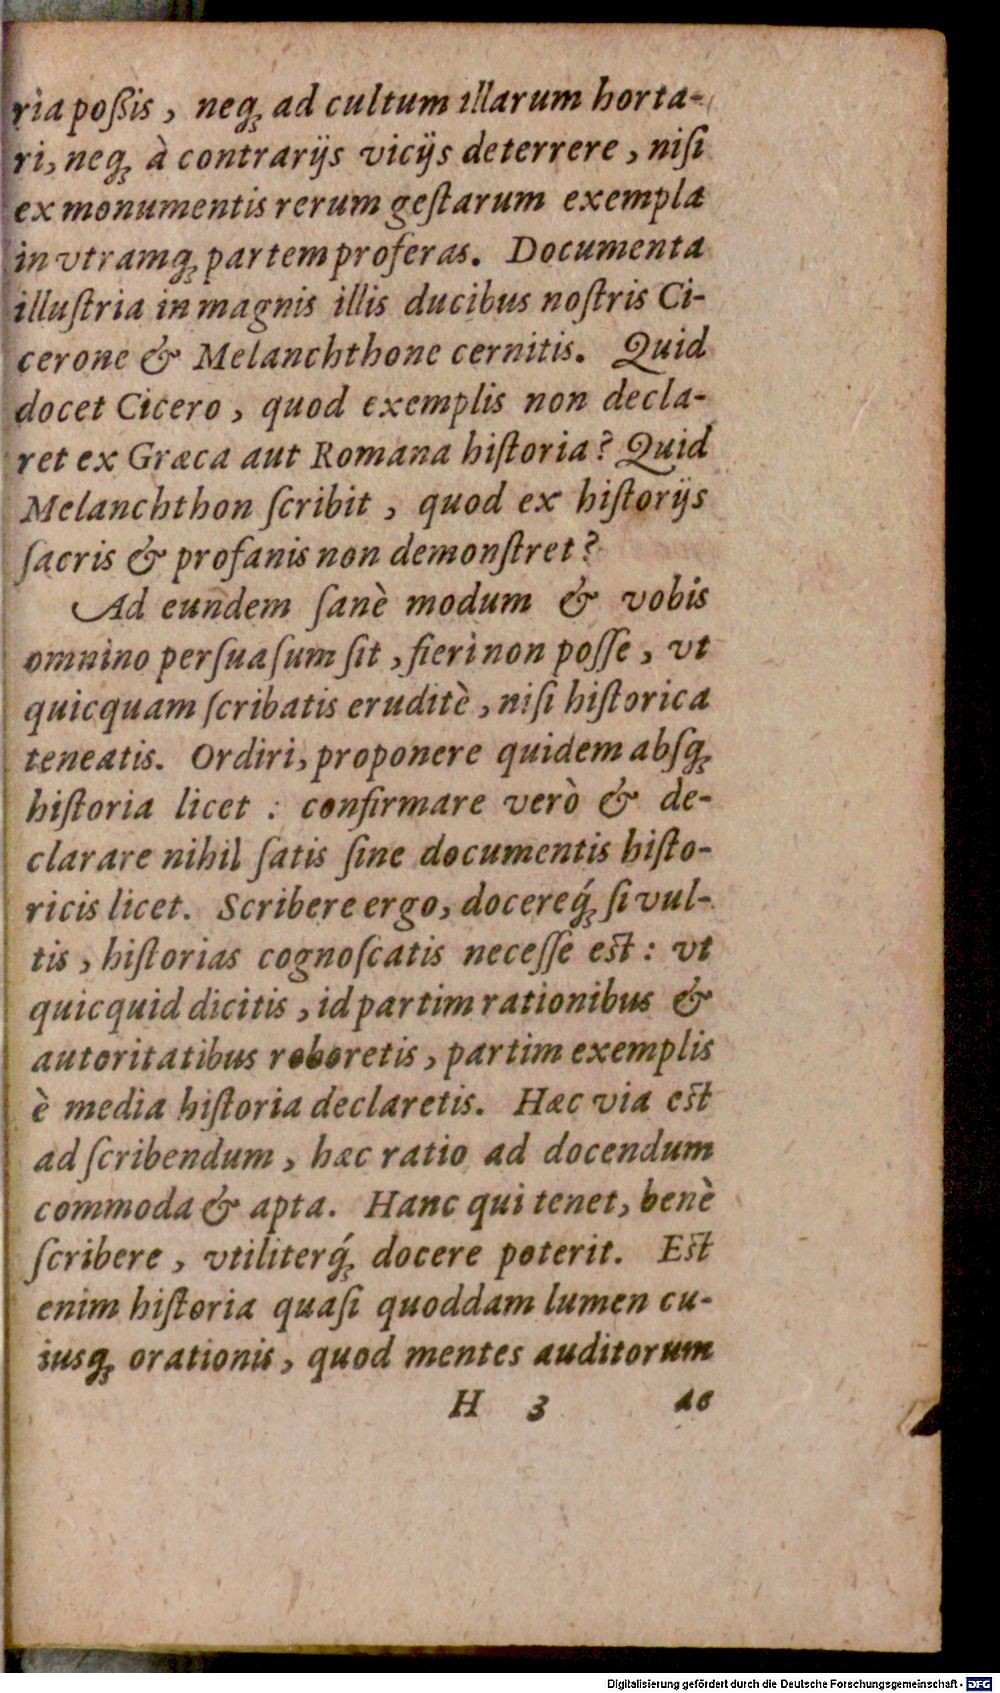 ria poßis, neq; ad cultum illarum horta-
ri, neq; à contrarijs vicijs deterrere, niſi
ex monumentis rerum geſtarum exempla
in vtramq; partem proferas. Documenta
illuſtria in magnis illis ducibus noſtris Ci-
cerone & Melanchthone cernitis. Quid
docet Cicero, quod exemplis non decla-
ret ex Græca aut Romana hiſtoria? Quid
Melanchthon ſcribit, quod ex hiſtorijs
ſacris & profanis non demonſtret?
Ad eundem ſanè modum & vobis
omnino perſuaſum ſit, fieri non poſſe, vt
quicquam ſcribatis eruditè, niſi hiſtorica
teneatis. Ordiri, proponere quidem abſq;
hiſtoria licet: confirmare verò & de-
clarare nihil ſatis ſine documentis hiſto-
ricis licet. Scribere ergo, docereq́; ſi vul-
tis, hiſtorias cognoſcatis neceſſe eſt: vt
quicquid dicitis, id partim rationibus &
autoritatibus roboretis, partim exemplis
è media hiſtoria declaretis. Hæc via eſt
ad ſcribendum, hæc ratio ad docendum
commoda & apta. Hanc qui tenet, benè
ſcribere, vtiliterq́; docere poterit. Eſt
enim hiſtoria quaſi quoddam lumen cu-
iusq; orationis, quod mentes auditorum
H 3 ac
Digitalisierung gefördert durch die Deutsche Forschungsgemeinschaft - DFG